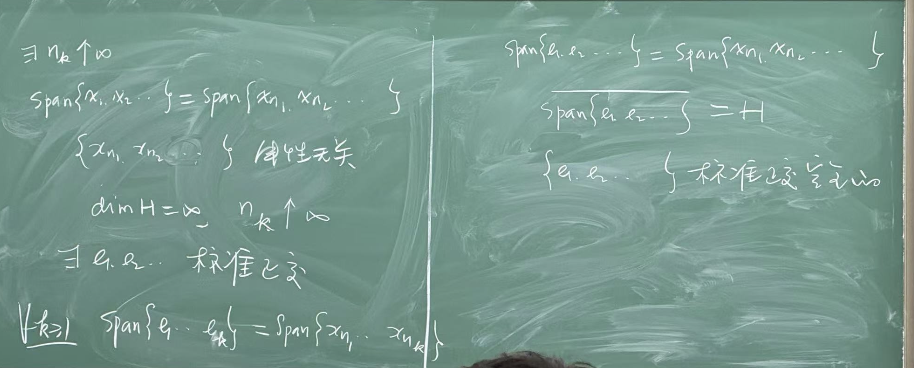 ∃ n_k ↑ ∞
span{x_1, x_2 ...} = span{x_{n_1}, x_{n_2} ... }
{x_{n_1} x_{n_2} ... } 线性无关
dim H = ∞ n_k ↑ ∞
∃ e_1 e_2 .. 标准正交
∀ k≥1 span{e_1 ... e_k} = span{x_{n_1} ... x_{n_k}}
span{e_1 e_2 ... } = span{x_{n_1} x_{n_2} ... }
\overline{span{e_1 e_2 ... }} = H
{e_1 e_2 ... } 标准正交完全的